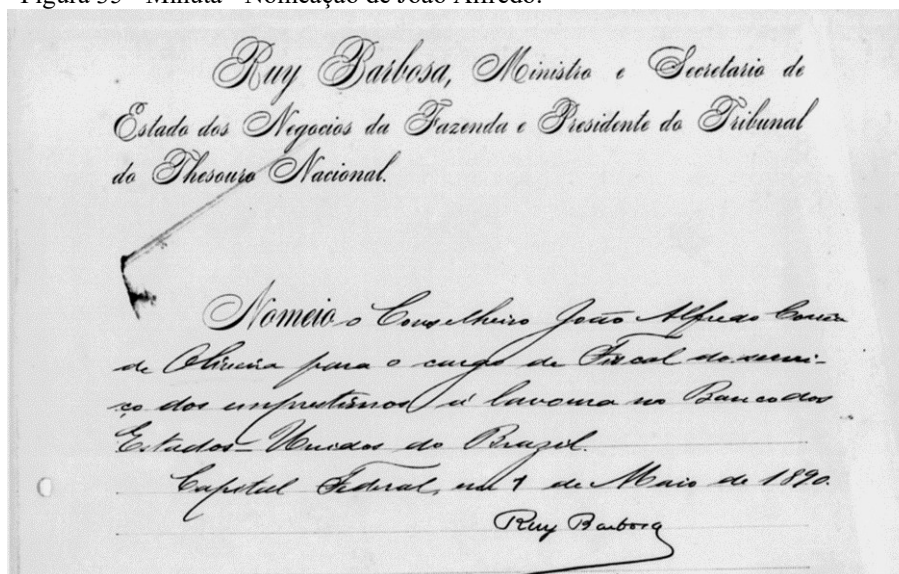 Figura 35 - Minuta - Nomeação de João Alfredo.
Ruy Barbosa, Ministro e Secretario de
Estado dos Negocios da Fazenda e Presidente do Tribunal
do Thesouro Nacional.
Nomeio o Conselheiro João Alfredo Corrêa
de Oliveira para o cargo de Fiscal do servi-
ço dos emprestimos á lavoura no Banco dos
Estados-Unidos do Brazil.
Capital Federal, em 7 de Maio de 1890.
Ruy Barbosa